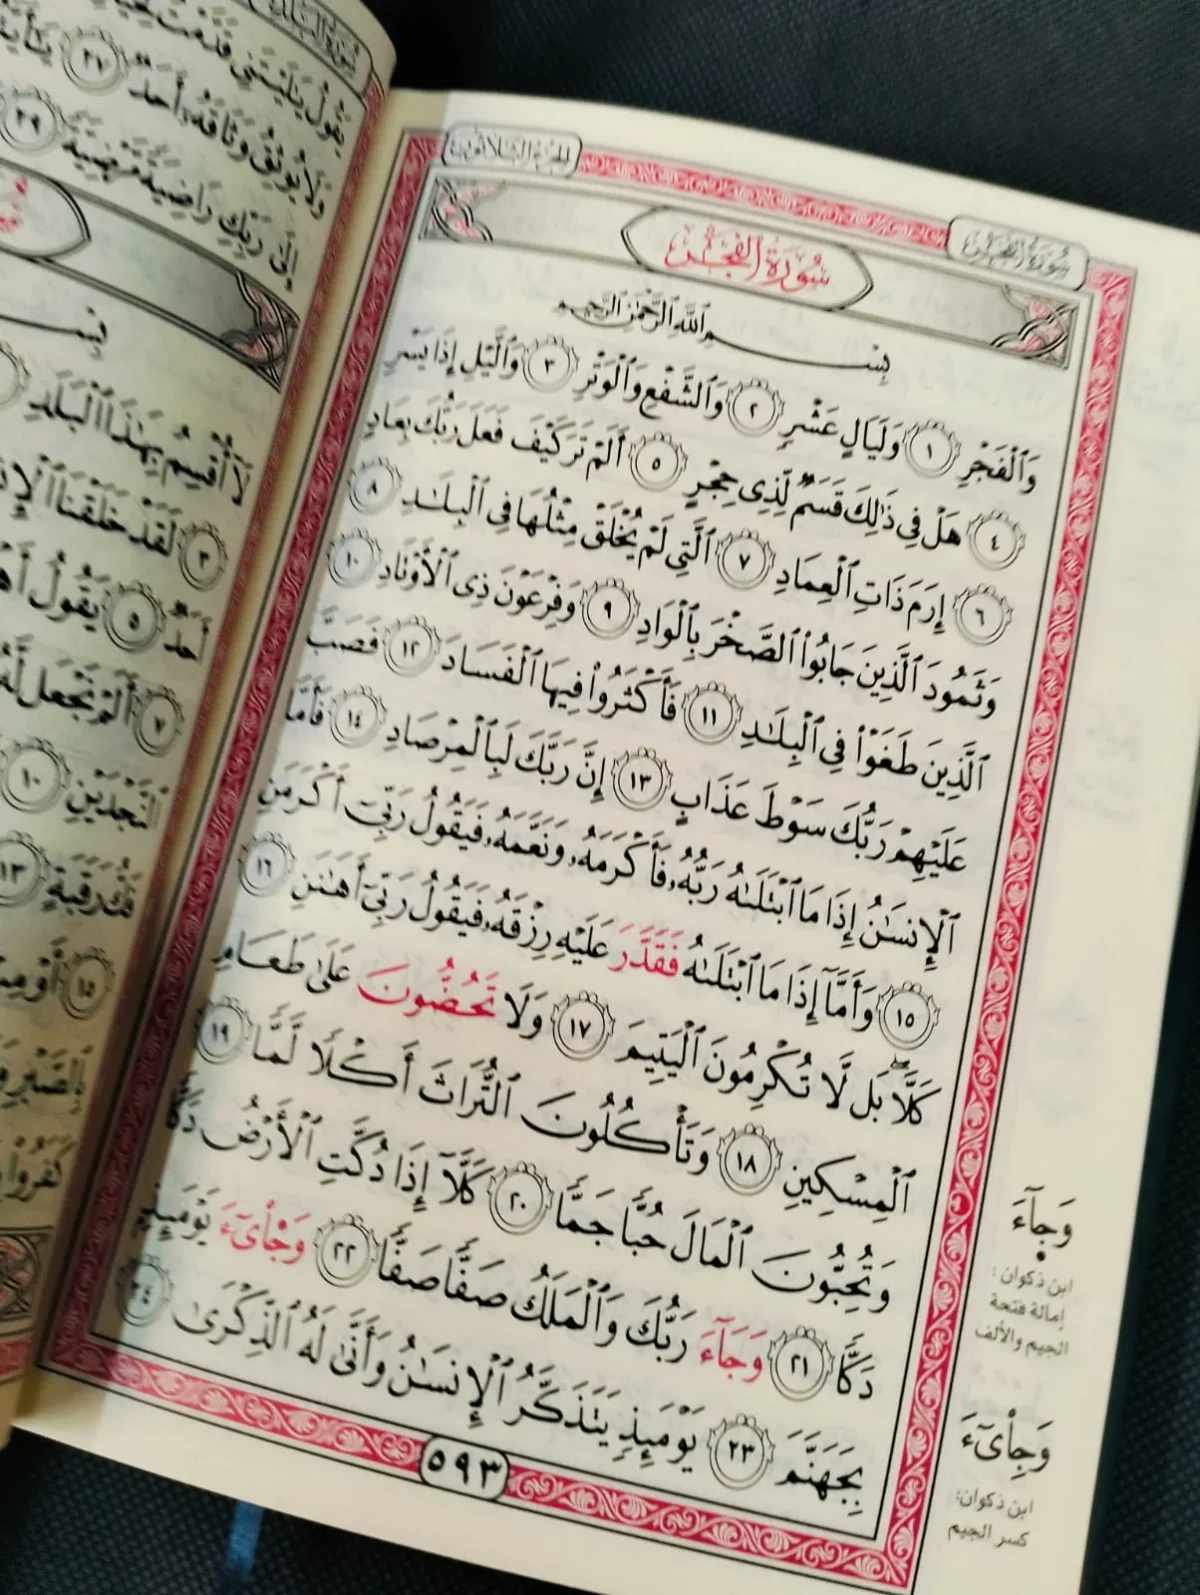 الجزء الثلاثون
سورة الفجر
سُورَةُ الفَجْرِ
بِسْمِ ٱللَّهِ ٱلرَّحْمَٰنِ ٱلرَّحِيمِ
وَٱلْفَجْرِ ١ وَلَيَالٍ عَشْرٍ ٢ وَٱلشَّفْعِ وَٱلْوَتْرِ ٣ وَٱلَّيْلِ إِذَا يَسْرِ
٤ هَلْ فِي ذَٰلِكَ قَسَمٌ لِّذِي حِجْرٍ ٥ أَلَمْ تَرَ كَيْفَ فَعَلَ رَبُّكَ بِعَادٍ
٦ إِرَمَ ذَاتِ ٱلْعِمَادِ ٧ ٱلَّتِي لَمْ يُخْلَقْ مِثْلُهَا فِي ٱلْبِلَٰدِ ٨
وَثَمُودَ ٱلَّذِينَ جَابُوا۟ ٱلصَّخْرَ بِٱلْوَادِ ٩ وَفِرْعَوْنَ ذِي ٱلْأَوْتَادِ ١٠
ٱلَّذِينَ طَغَوْا۟ فِي ٱلْبِلَٰدِ ١١ فَأَكْثَرُوا۟ فِيهَا ٱلْفَسَادَ ١٢ فَصَبَّ
عَلَيْهِمْ رَبُّكَ سَوْطَ عَذَابٍ ١٣ إِنَّ رَبَّكَ لَبِٱلْمِرْصَادِ ١٤ فَأَمَّا
ٱلْإِنسَٰنُ إِذَا مَا ٱبْتَلَىٰهُ رَبُّهُۥ فَأَكْرَمَهُۥ وَنَعَّمَهُۥ فَيَقُولُ رَبِّيٓ أَكْرَمَنِ
١٥ وَأَمَّآ إِذَا مَا ٱبْتَلَىٰهُ فَقَدَّرَ عَلَيْهِ رِزْقَهُۥ فَيَقُولُ رَبِّيٓ أَهَٰنَنِ ١٦
كَلَّا ۖ بَل لَّا تُكْرِمُونَ ٱلْيَتِيمَ ١٧ وَلَا تَحُضُّونَ عَلَىٰ طَعَامِ
ٱلْمِسْكِينِ ١٨ وَتَأْكُلُونَ ٱلتُّرَاثَ أَكْلًا لَّمًّا ١٩
وَتُحِبُّونَ ٱلْمَالَ حُبًّا جَمًّا ٢٠ كَلَّآ إِذَا دُكَّتِ ٱلْأَرْضُ دَكًّا
دَكًّا ٢١ وَجَآءَ رَبُّكَ وَٱلْمَلَكُ صَفًّا صَفًّا ٢٢ وَجِا۟يٓءَ يَوْمَئِذٍۭ
بِجَهَنَّمَ ٢٣ يَوْمَئِذٍ يَتَذَكَّرُ ٱلْإِنسَٰنُ وَأَنَّىٰ لَهُ ٱلذِّكْرَىٰ ٢٤
٥٩٣
وَجَآءَ
ابن ذكوان:
إمالة فتحة
الجيم والألف
وَجِا۟يٓءَ
ابن ذكوان:
كسر الجيم
يَقُولُ يَٰلَيْتَنِي
٢٧
وَلَا يُوثِقُ وَثَاقَهُۥٓ أَحَدٌ
٢٩
إِلَىٰ رَبِّكِ رَاضِيَةً مَّرْضِيَّةً
لَآ أُقْسِمُ بِهَٰذَا ٱلْبَلَدِ
٣ لَقَدْ خَلَقْنَا
أَحَدٌ ٥ يَقُولُ
٧ أَلَمْ نَجْعَل لَّهُۥ
ٱلنَّجْدَيْنِ ١٠
فَكُّ رَقَبَةٍ ١٣
١٥ أَوْ
كَفَرُوا۟